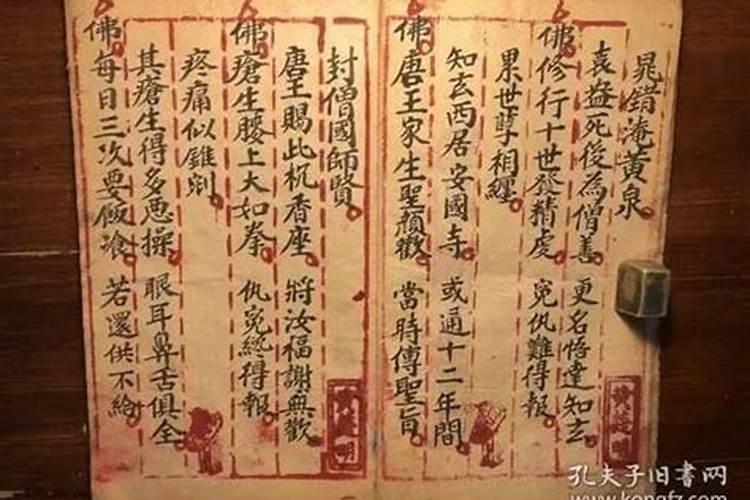 晁錯淹黃泉
袁盎死後為僧善 更名悟達知玄
佛修行十世發精虔 冤仇難得報
累世孽相纏
知玄西居安國寺 或通十二年間
佛唐王家生聖顏歡 當時傳聖旨
封僧國師賢
唐王賜此杌香座 將汝福謝無歡
佛瘡生腰上大如拳 仇冤總得報
疼痛似錐剜
其瘡生得多惡操 眼耳鼻舌俱全
佛每日三次要飯飡 若還供不給
孔夫子旧书网
www.kongfz.com